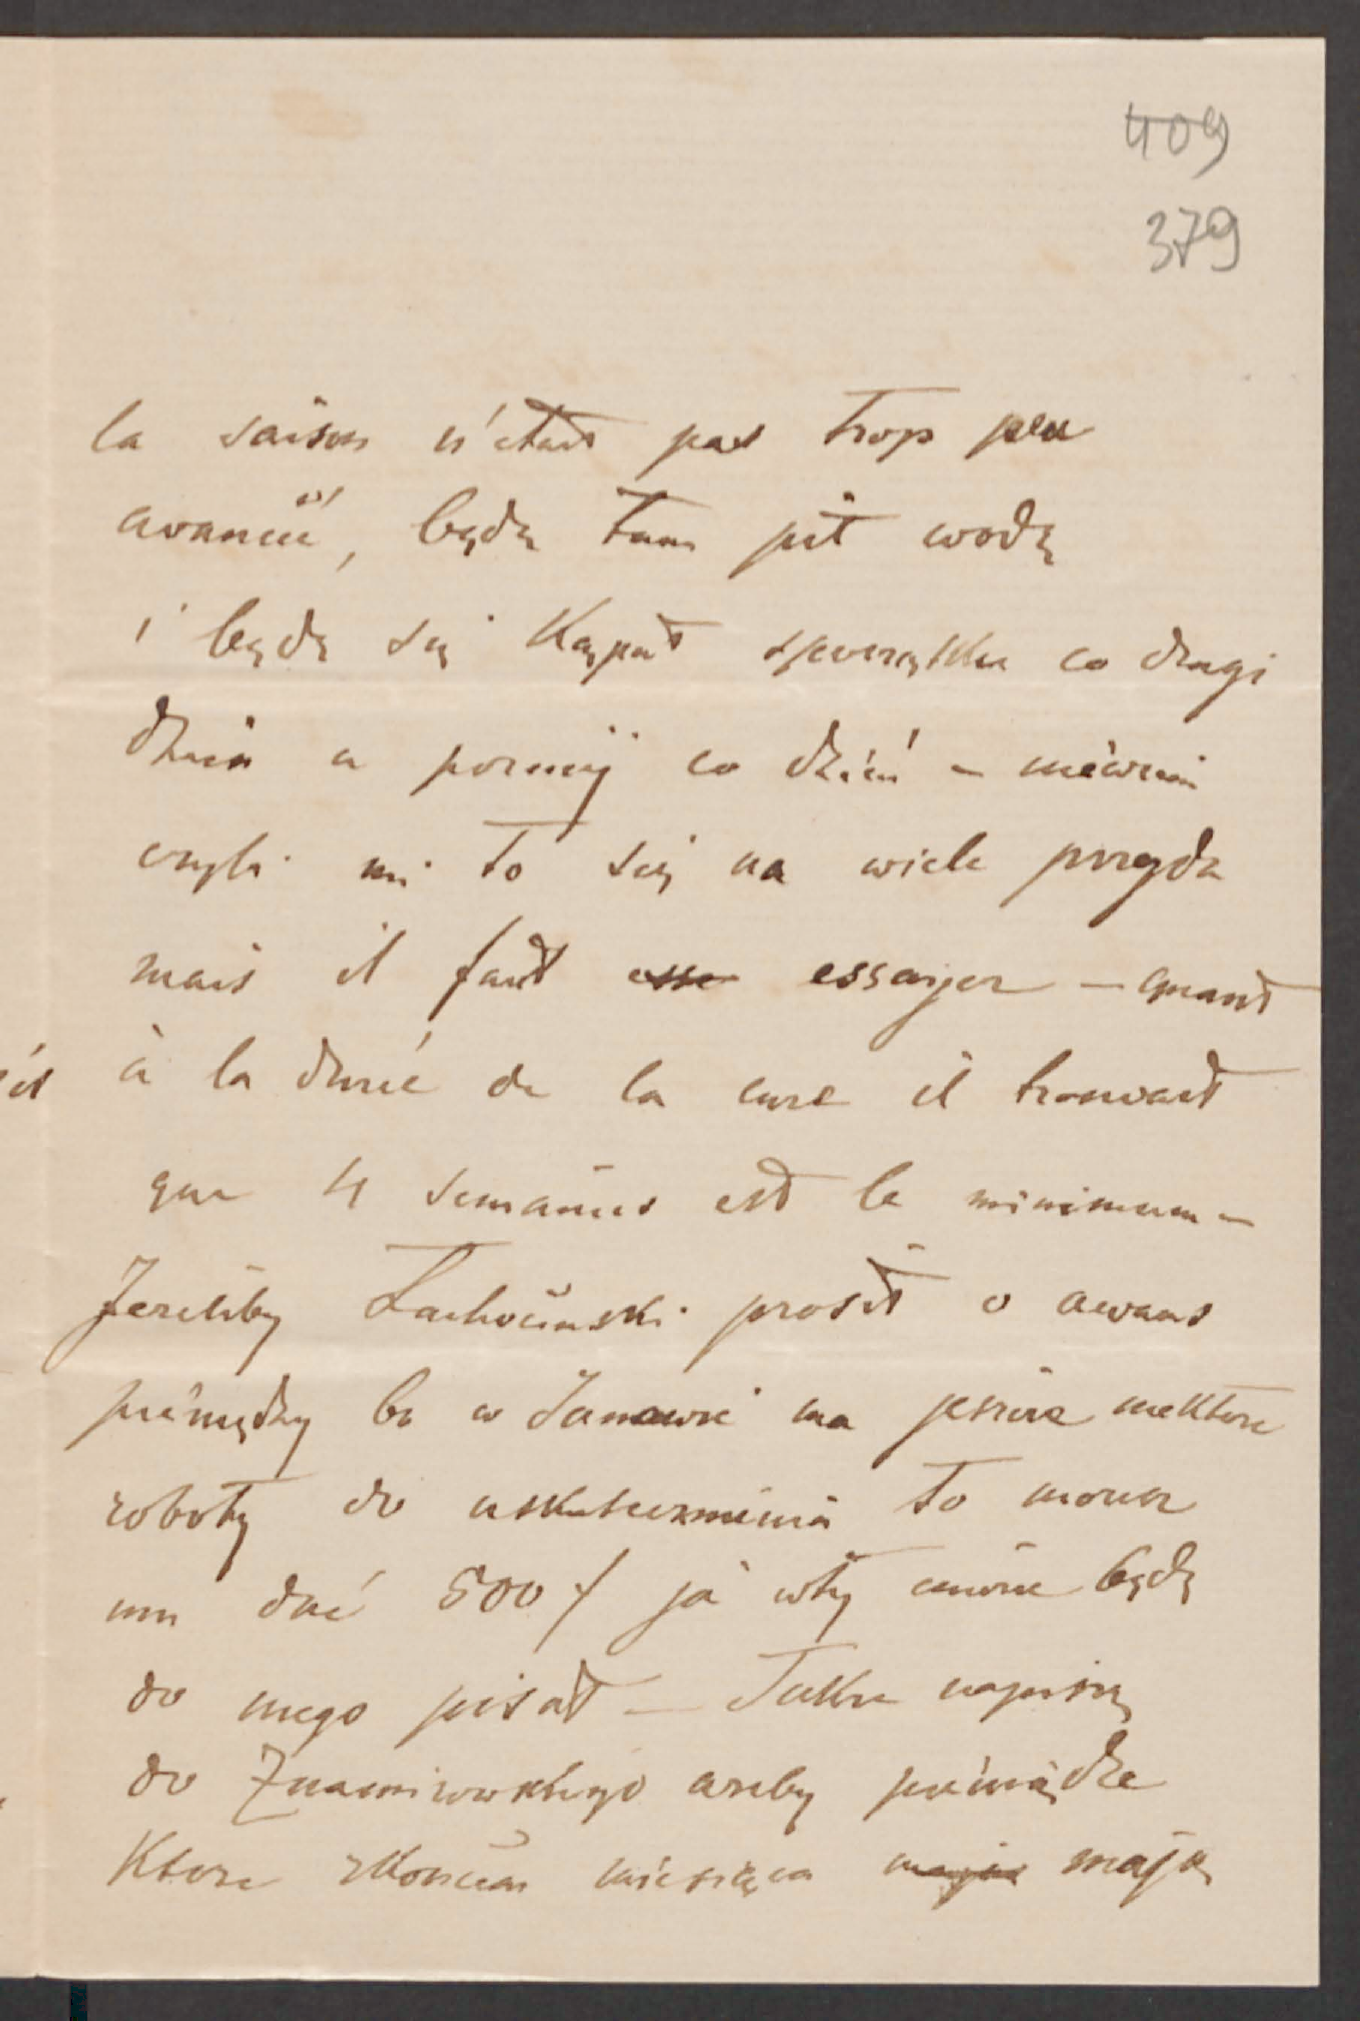 409
379
la saison n'étant pas trop peu
avancée, będę tam pił wodę
i będę się kąpał spoczątku co drugi
dzień a pozniej co dzień – niewiem
czyli mi to się na wiele przyda
mais il faut esse essayer – quant
à la durée de la cure il trouvait
que 4 semaines est le minimum –
Jereliby Lachociński prosił o awans
pieniędzy bo w Janowie ma jeszcze niektore
roboty do uskutecznienia to mozesz
mu dać 500 f ja w tej mierze będę
do niego pisał – Także napiszę
do Znamirowskiego azeby pieniądze
Ktore zkońcem miesiąca mają mają